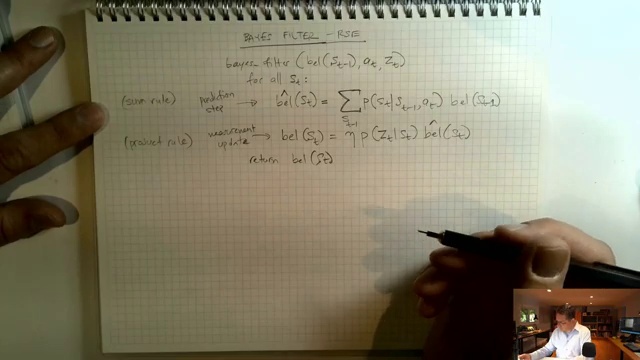 BAYES FILTER - RSE
bayes filter (bel(S_{t-1}), a_t, Z_t)
for all S_t:
(sum rule) prediction step → bel̂(S_t) = ∑_{S_{t-1}} p(S_t | S_{t-1}, a_t) bel(S_{t-1})
(product rule) measurement update → bel(S_t) = η p(Z_t | S_t) bel̂(S_t)
return bel(S_t)